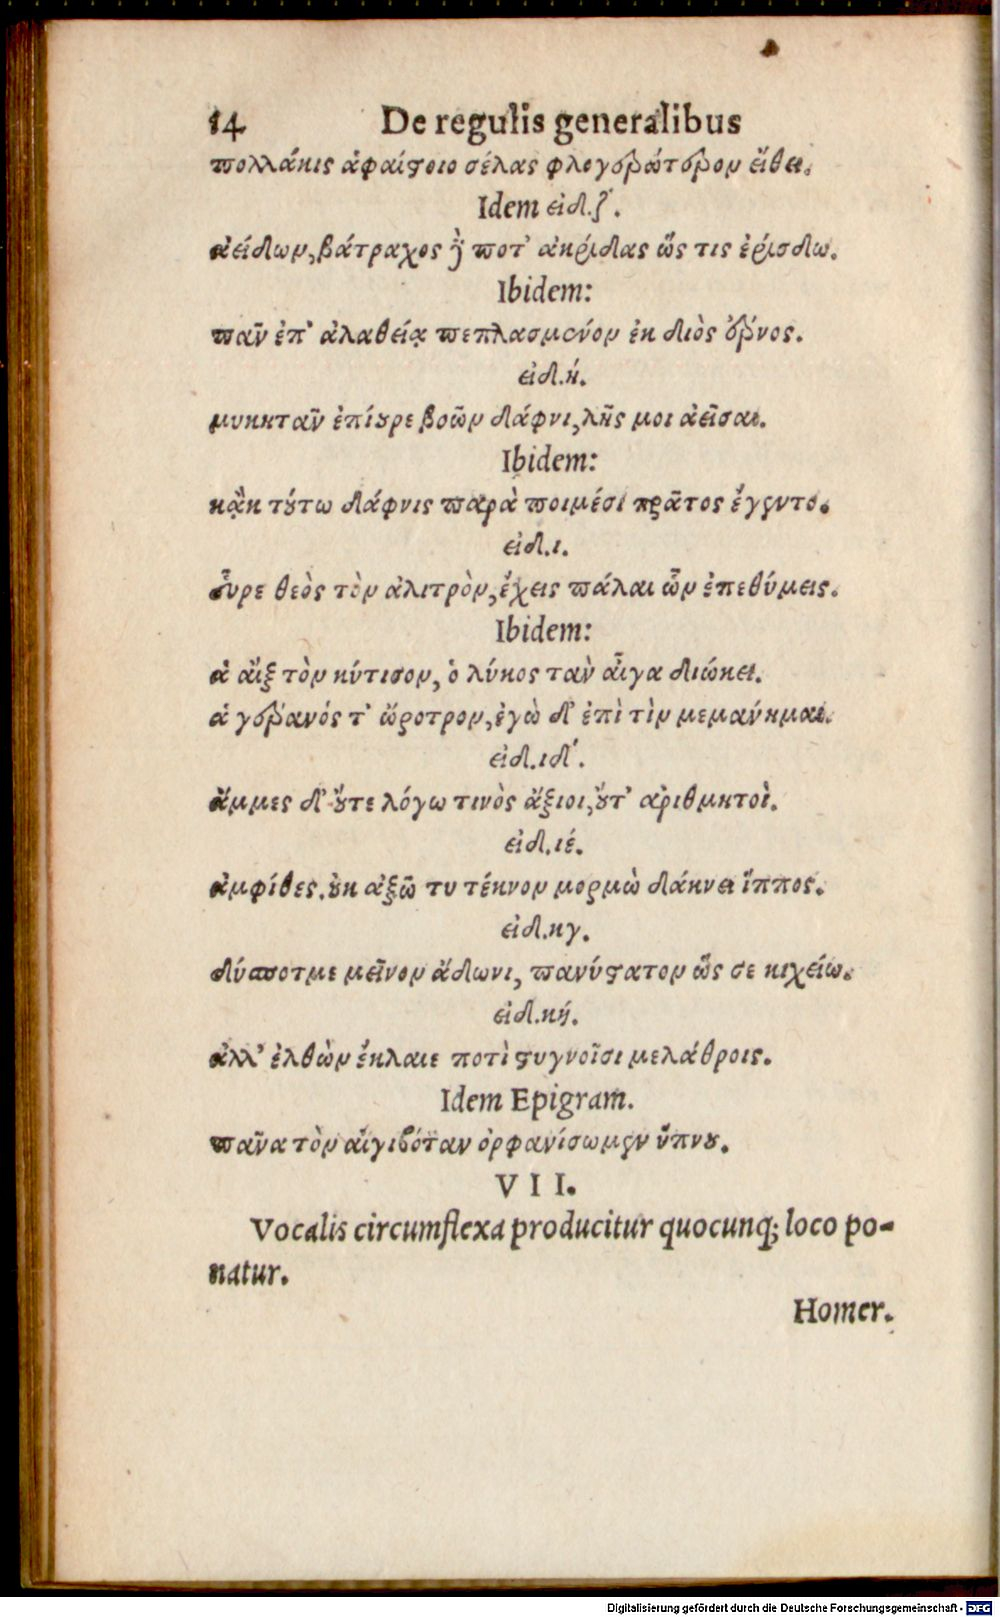 14 De regulis generalibus
πολλάκις ἁφαίστοιο σέλας φλογερώτερον αἴθει.
Idem εἰδ. ζ΄.
ἀείδων, βάτραχος δὲ ποτ' ἀκρίδας ὥς τις ἐρίσδω.
Ibidem:
πᾶν ἐπ' ἀλαθείᾳ πεπλασμένον ἐκ διὸς ἔρνος.
εἰδ. ή.
μυκητᾶν ἐπίουρε βοῶν δάφνι, λῇς μοι ἀεῖσαι.
Ibidem:
κᾂκ τούτω δάφνις παρὰ ποιμέσι πρᾶτος ἔγεντο.
εἰδ. ι.
εὗρε θεὸς τὸν ἀλιτρὸν, ἔχεις πάλαι ὧν ἐπεθύμεις.
Ibidem:
ἁ αἲξ τὸν κύτισον, ὁ λύκος τὰν αἶγα διώκει.
ἁ γερανός τ' ὤροτρον, ἐγὼ δ' ἐπὶ τὶν μεμάνημαι.
εἰδ. ιδ΄.
ἄμμες δ' οὔτε λόγω τινὸς ἄξιοι, οὔτ' ἀριθμητοὶ.
εἰδ. ιέ.
ἀμφίθες. οὐκ ἀξῶ τυ τέκνον μορμὼ δάκνει ἵππος.
εἰδ. κγ.
δύσποτμε μεῖνον ἄδωνι, πανύστατον ὥς σε κιχείω.
εἰδ. κή.
ἀλλ' ἐλθὼν ἔκλαιε ποτὶ στυγνοῖσι μελάθροις.
Idem Epigram.
πᾶνα τὸν αἰγιβόταν ὀρφανίσωμεν ὕπνου.
VII.
Vocalis circumflexa producitur quocunq; loco po-
natur.
Homer.
Digitalisierung gefördert durch die Deutsche Forschungsgemeinschaft - DFG